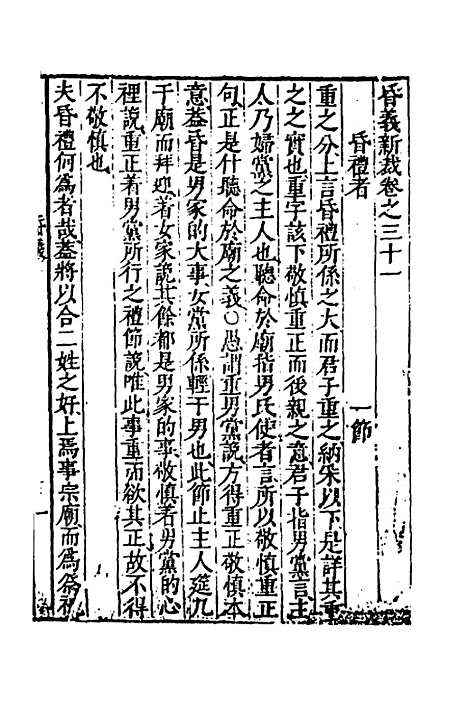 昏義新裁卷之三十一
昏禮者 一節
重之分上言昏禮所係之大而君子重之納采以下是詳其重
之之實也重字該下敬慎重正而後親之意君子指男黨言主
人乃婦黨之主人也聽命於廟指男氏使者言所以敬慎重正
句正是什聽命於廟之義○愚謂重男黨說方得重正敬慎本
意蓋昏是男家的大事女黨所係輕于男也此節止主人筵几
于廟而拜迎着女家說其餘都是男家的事敬慎着男黨的心
裡說重正着男黨所行之禮節說唯此事重而欲其正故不得
不敬慎也
夫昏禮何為者哉蓋將以合二姓之好上焉事宗廟而為祭祀
昏義
一